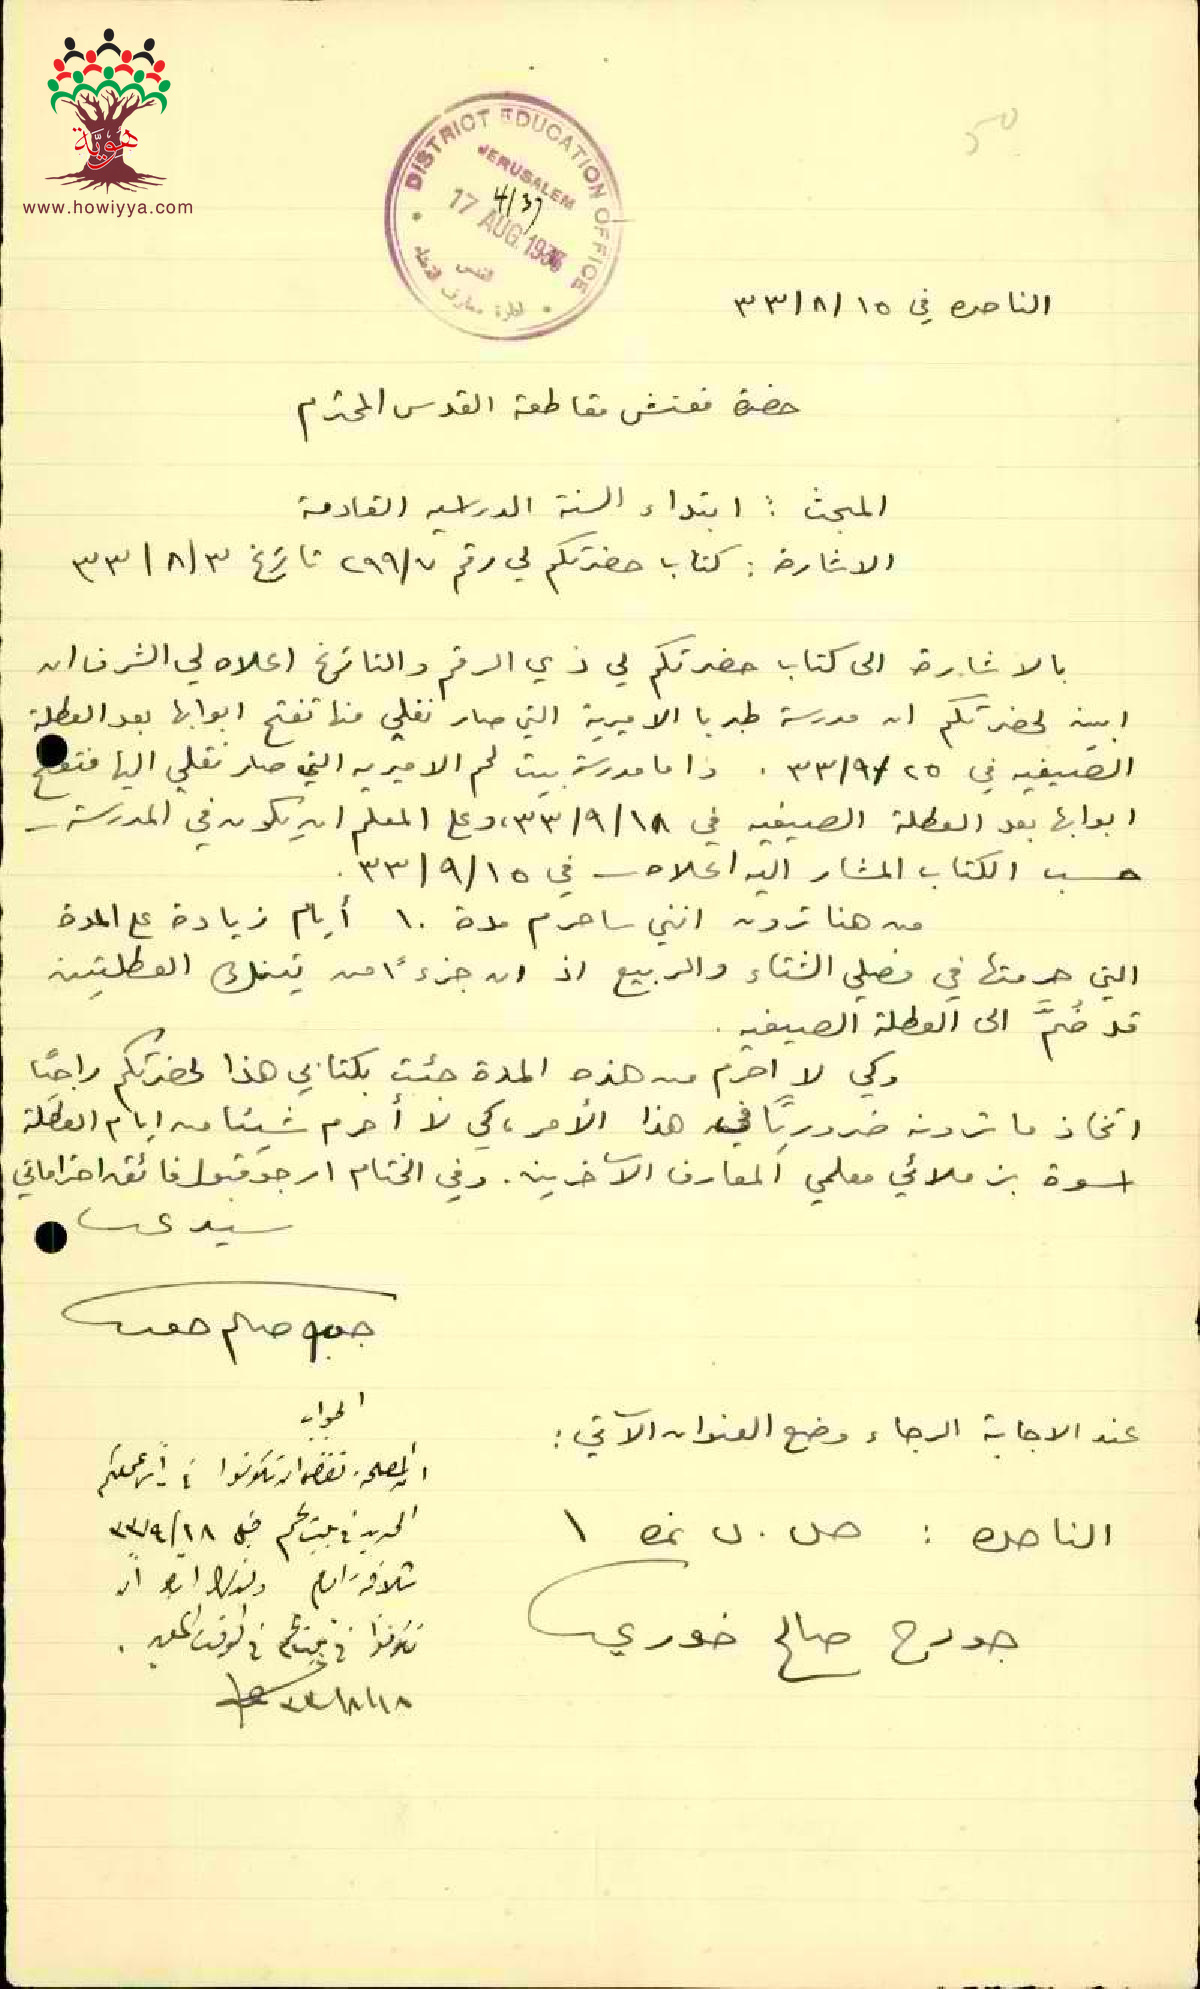 هوية
www.howiyya.com
DISTRICT EDUCATION OFFICE
JERUSALEM
4/37
17 AUG 1933
القدس
الناصره في ١٥/٨/٣٣
حضرة مفتش مقاطعة القدس المحترم
المبحث : ابتداء السنة الدراسيه القادمة
الاشارة : كتاب حضرتكم لي رقم ٢٩٩/٧ تاريخ ٣/٨/٣٣
بالاشارة الى كتاب حضرتكم لي ذي الرقم والتاريخ اعلاه لي الشرف ان
ابين لحضرتكم ان مدرسة طبريا الاميرية التي صار نقلي منها تفتح ابوابها بعد العطلة
الصيفيه في ٢٥/٩/٣٣ . واما مدرسة بيت لحم الاميريه التي صار نقلي اليها فتفتح
ابوابها بعد العطلة الصيفيه في ١٨/٩/٣٣، وعلى المعلم ان يكون في المدرسة –
حسب الكتاب المشار اليه اعلاه – في ١٥/٩/٣٣ .
من هنا ترون انني ساحرم مدة ١٠ أيام زيادة على المدة
التي حرمتها في فصلي الشتاء والربيع اذ ان جزءًا من تينك العطلتين
قد ضُمَّ الى العطلة الصيفيه .
وكي لا احرم من هذه المدة جئت بكتابي هذا لحضرتكم راجيًا
اتخاذ ما ترونه ضروريًا في هذا الأمر، كي لا أحرم شيئا من ايام العطلة
اسوة بزملائي معلمي المعارف الآخرين . وفي الختام ارجو قبول فائق احتراماتي
سيدي
جورج صالح خوري
عند الاجابة الرجاء وضع العنوان الآتي :
الناصره : ص . ب نمره ١
جورج صالح خوري
الجواب
ان المصلحة تقضي ان تكونوا في مركز عملكم
الجديد في بيت لحم قبل ١٨/٩/٣٣
بثلاثة ايام ولذلك ارجو ان
تكونوا في بيت لحم في الوقت المعين .
١٨/٨/٣٣